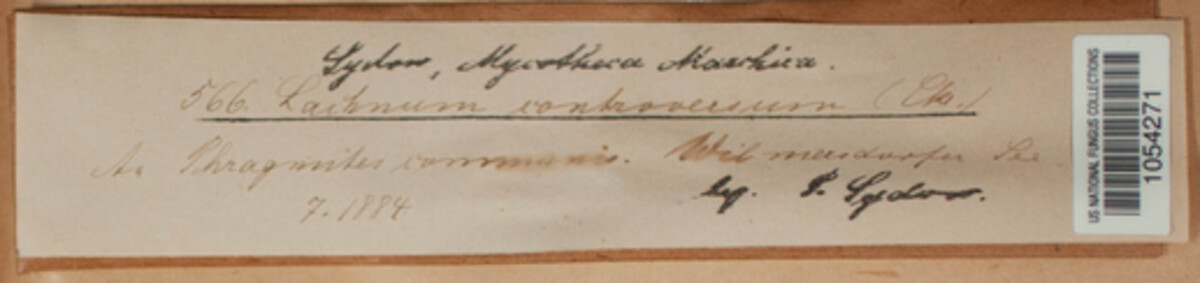 Sydow, Mycotheca Marchica.
566. Lachnum controversum (Cke.)
An Phragmites communis. Wilmersdorfer See
7. 1884 leg. P. Sydow.
US NATIONAL FUNGUS COLLECTIONS
1054271